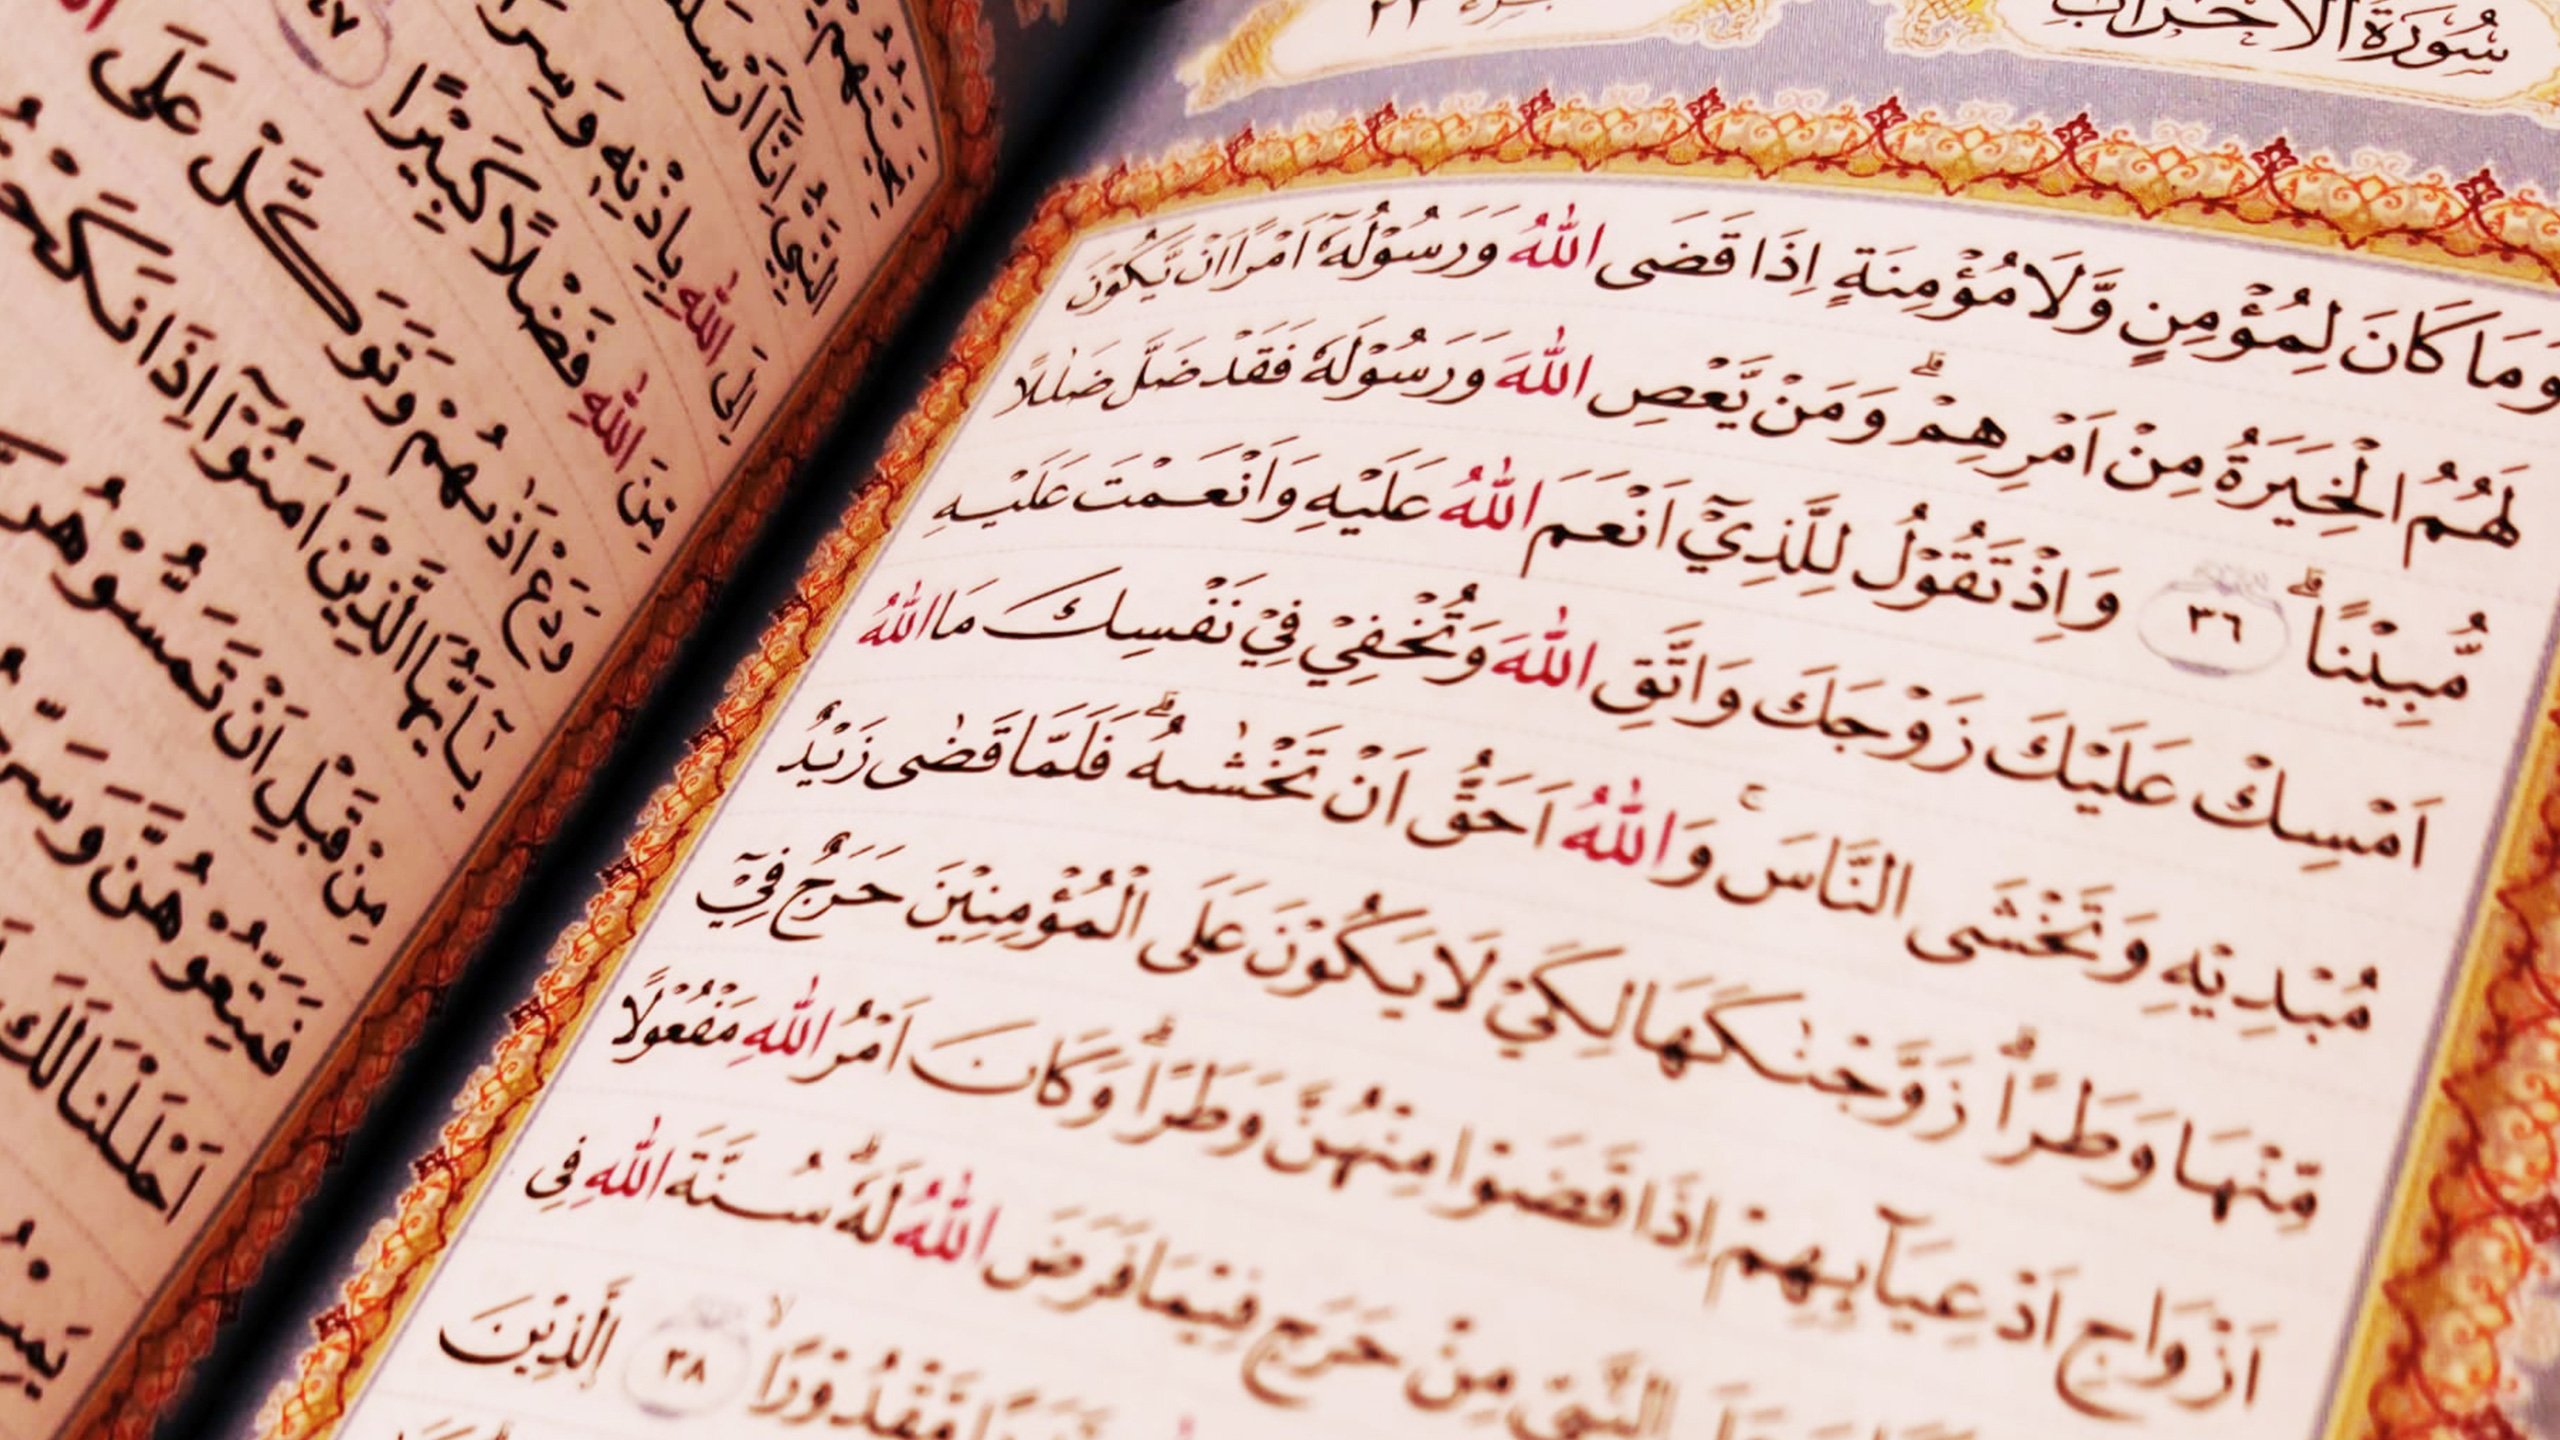 سُورَةُ الْاَحْزَاب
جزء ٢٢
وَمَا كَانَ لِمُؤْمِنٍ وَّلَا مُؤْمِنَةٍ اِذَا قَضَى اللّٰهُ وَرَسُوْلُهٗٓ اَمْرًا اَنْ يَّكُوْنَ
لَهُمُ الْخِيَرَةُ مِنْ اَمْرِهِمْ ۗ وَمَنْ يَّعْصِ اللّٰهَ وَرَسُوْلَهٗ فَقَدْ ضَلَّ ضَلٰلًا
مُّبِيْنًا ۗ ٣٦ وَاِذْ تَقُوْلُ لِلَّذِيْٓ اَنْعَمَ اللّٰهُ عَلَيْهِ وَاَنْعَمْتَ عَلَيْهِ
اَمْسِكْ عَلَيْكَ زَوْجَكَ وَاتَّقِ اللّٰهَ وَتُخْفِيْ فِيْ نَفْسِكَ مَا اللّٰهُ
مُبْدِيْهِ وَتَخْشَى النَّاسَ ۚ وَاللّٰهُ اَحَقُّ اَنْ تَخْشٰىهُ ۗ فَلَمَّا قَضٰى زَيْدٌ
مِّنْهَا وَطَرًاۗ زَوَّجْنٰكَهَا لِكَيْ لَا يَكُوْنَ عَلَى الْمُؤْمِنِيْنَ حَرَجٌ فِيْٓ
اَزْوَاجِ اَدْعِيَاۤىِٕهِمْ اِذَا قَضَوْا مِنْهُنَّ وَطَرًاۗ وَكَانَ اَمْرُ اللّٰهِ مَفْعُوْلًا
النَّبِيِّ مِنْ حَرَجٍ فِيْمَا فَرَضَ اللّٰهُ لَهٗ ۗ سُنَّةَ اللّٰهِ فِى
مَّقْدُوْرًاۙ ٣٨ الَّذِيْنَ
اِنَّآ اَرْسَلْ
اللّٰهِ بِاِذْنِهٖ وَسِرَا
مِّنَ اللّٰهِ فَضْلًا كَبِيْرًا ٤٧
وَدَعْ اَذٰىهُمْ وَتَوَكَّلْ عَلَى
يٰٓاَيُّهَا الَّذِيْنَ اٰمَنُوْٓا اِذَا نَكَحْتُ
مِنْ قَبْلِ اَنْ تَمَسُّوْهُنَّ
فَمَتِّعُوْهُنَّ وَسَرِّ
اَحْلَلْنَا لَكَ
يَمِيْ